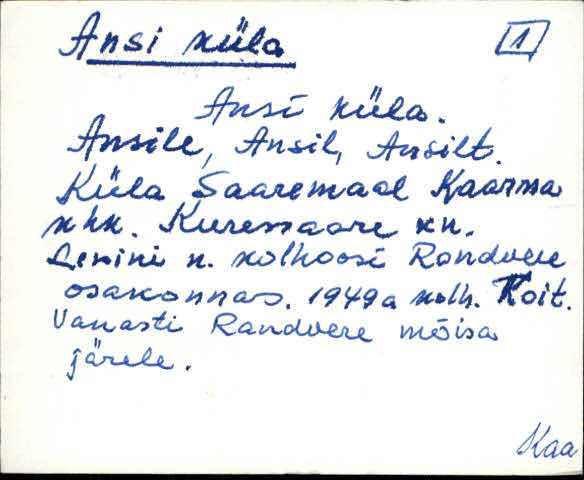 Ansi küla
1
Ansi küla.
Ansile, Ansil, Ansilt.
Küla Saaremaal Kaarma
khk. Kuressaare kn.
Lenini n. kolhoosi Randvere
osakonnas. 1949a kolh. Koit.
Vanasti Randvere mõisa
järele.
Kaa